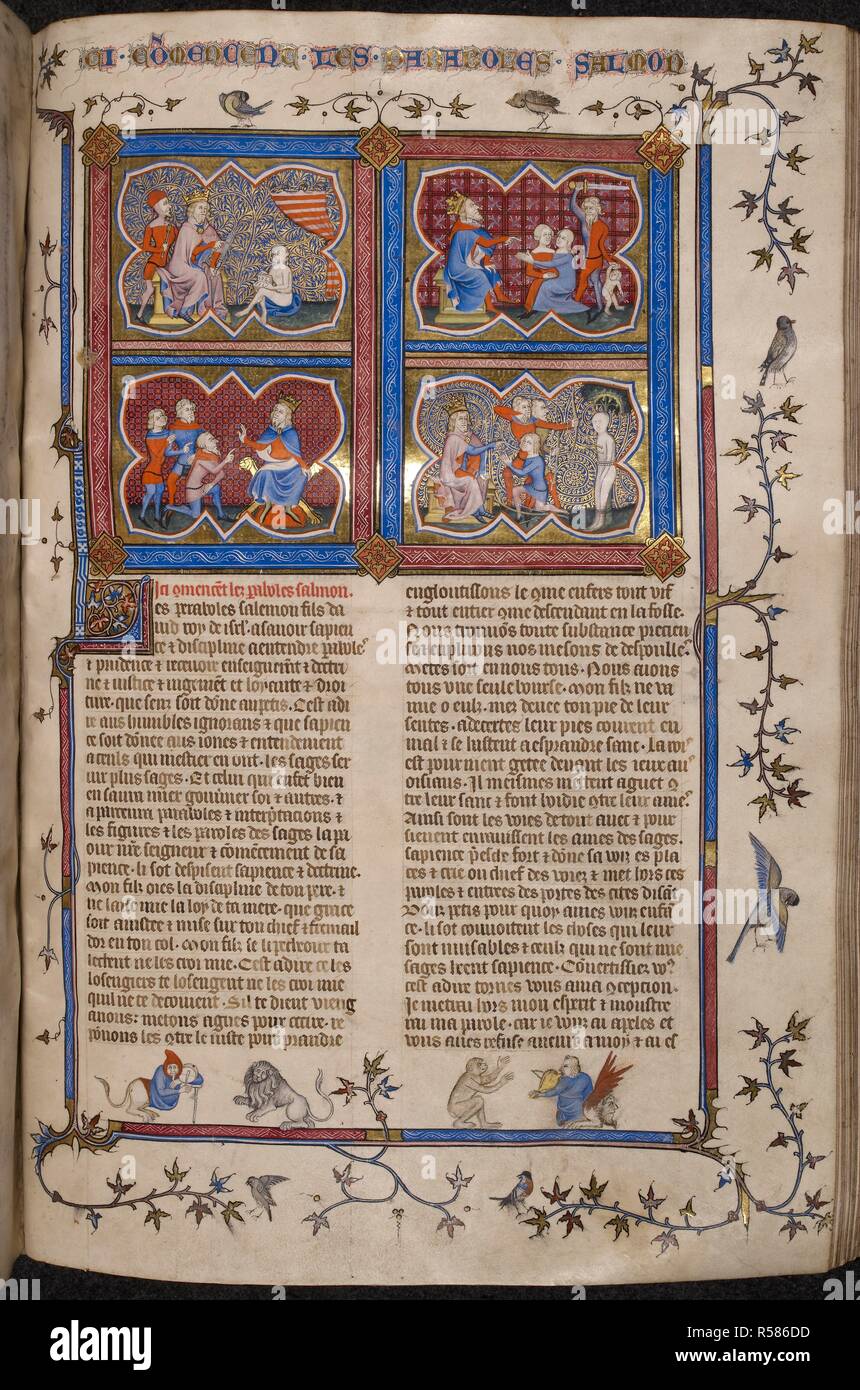 CI · COMENCENT · LES · PARABOLES · SALMON
Ici cmencēt les paboles salmon.
es paraboles salemon fils da
uid roy de isrl. asauoir sapien
ce & discipline a entendre parole
& prudence & receuoir enseignemt & doctri
ne & iustice & iugement et loyaute & droi
ture. que sens soit dōne aus petis. Cest adi
re aus humbles ignorans & que sapien
ce soit dōnee aus iones & entendement
a ceuls qui mestier en ont. les sages ser
uir plus sages. Et celui qui enfēt bien
en saura miex gouūner soi & autres. &
a parceura paraboles & interptacions &
les figures & les paroles des sages la pa
our nr̄e seigneur & cōmēcement de sa
pience. li sot despisent sapience & doctrine.
Mon filz oies la discipline de ton pere. &
ne laisse mie la loy de ta mere. que grace
soit aiustee & mise sur ton chief & fremail
dor en ton col. Mon filz se li pecheour ta
lechent ne les croi mie. Cest adire ce les
losengiers te losengent ne les croi mie
quil ne te decoiuent. Sil te dient vieng
auous: metons agues pour occire. re
ponons les ōtre le iuste pour prandre
engloutissons le cme enfers tout vif
& tout entier cme descendant en la fosse.
Nous trouuōs toute substance precieu
se emplirons nos mesons de despoille.
Metes sort en nous tous. Nous auons
tous vne seule bourse. Mon filz ne va
mie o eulz. mez deuee ton pie de leur
sentes. adecertes leur pies courent en
mal & se hastent a espandre sanc. La roi
est pour nient getee deuant les ieux au
oisiaus. Il meismes metent aguet ō
tre leur sanc & font boidie ōtre leur ame.
Ainsi sont les voies de tout auer & pour
sieuent enrauissent les ames des sages.
sapience p̄sche fort & dōne sa voix es pla
ces & crie ou chief des voiez & met hors ces
paroles es entrees des portes des cites disāt
Vous petis pour quoy ames vous enfā
ce. li sot couuoitent les choses qui leur
sont nuisables & ceulz qui ne sont mie
sages heent sapience. Cōuertissiez vo9
cest adire tornes vous a ma correpcion.
Je metrai hors mon esperit & moustre
rai ma parole. car ie vous ai apeles et
vous aues refuse aueuir a moy & ai es
alamy
Image ID: R586DD
www.alamy.com